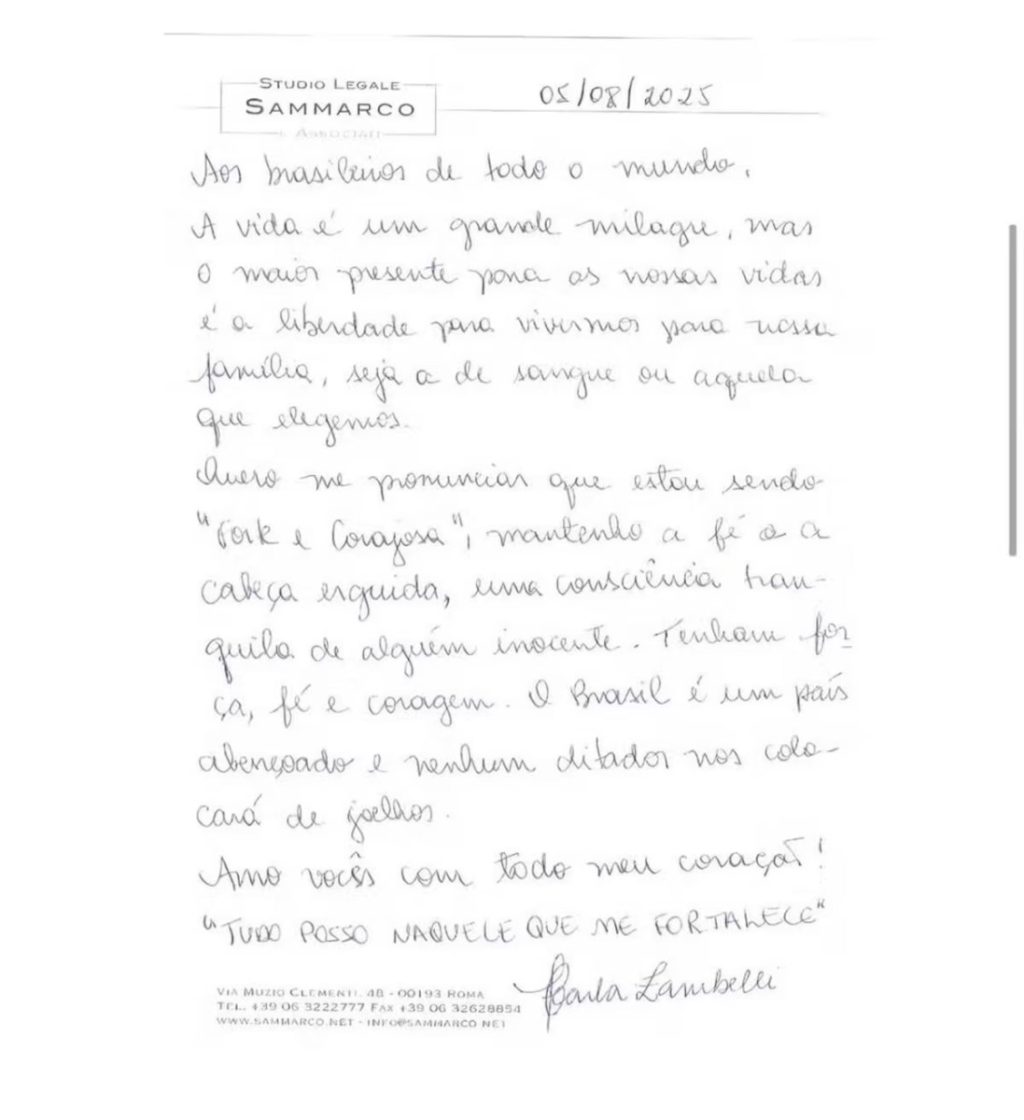 STUDIO LEGALE
SAMMARCO
E ASSOCIATI
05/08/2025
Aos brasileiros de todo o mundo.
A vida é um grande milagre, mas
o maior presente para as nossas vidas
é a liberdade para vivermos para nossa
família, seja a de sangue ou aquela
que elegemos.
Quero me pronunciar que estou sendo
"Forte e Corajosa", mantenho a fé e a
cabeça erguida, uma consciência tran-
quila de alguém inocente. Tenham for-
ça, fé e coragem. O Brasil é um país
abençoado e nenhum ditador nos colo-
cará de joelhos.
Amo vocês com todo meu coração!
"TUDO POSSO NAQUELE QUE ME FORTALECE"
Carla Zambelli
VIA MUZIO CLEMENTI, 48 - 00193 ROMA
TEL. +39 06 3222777 FAX +39 06 32628854
WWW.SAMMARCO.NET - INFO@SAMMARCO.NET